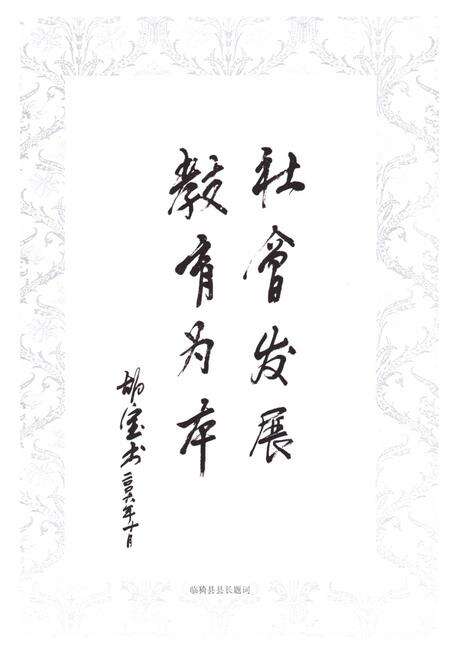 社會发展
教育为本
胡宝书
二〇〇六年十月
临猗县县长题词